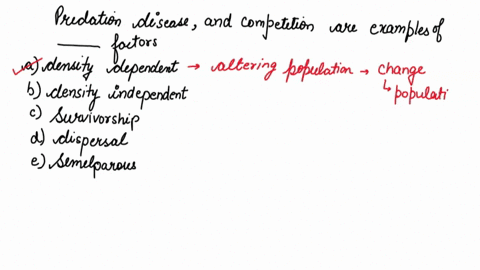 Predation disease, and competition are examples of
____ factors
a) density dependent → altering population → change
↳ populati
b) density independent
c) Survivorship
d) dispersal
e) Semelparous